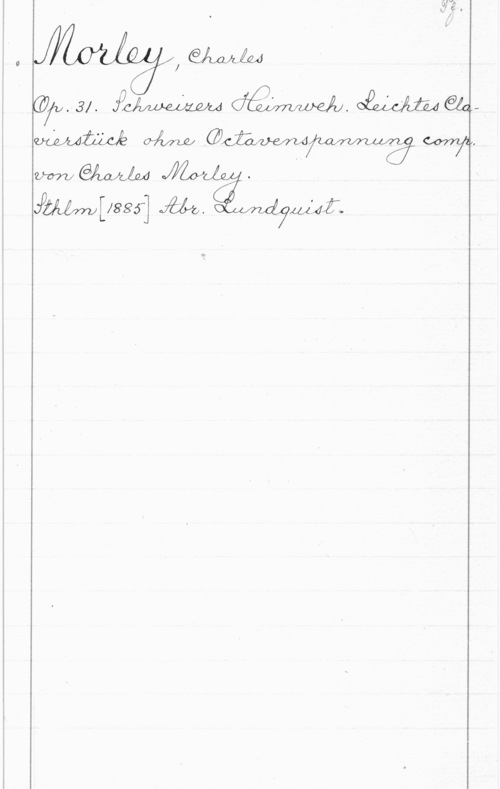 Morley, Charles
Op. 31. Schweizers Heimweh. Leichtes Cla-
vierstück ohne Octavenspannung comp.
von Charles Morley.
Sthlm [1885] Abr. Lundquist.